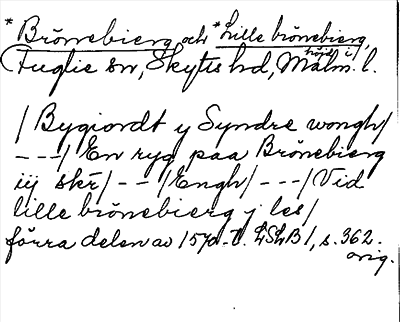 *Brönebierg och *Lille brönebierg, höjd i
Fuglie sn, Skytts hd, Malm. l.
/ Bygiordt y Syndre wongh/
---/ En ryg paa Brönebierg
iij skr̄/ -- /Engh/ ---/ Vid
lille brönebierg j les/
förra delen av 1570-t. LSLB 1, s. 362.
orig.